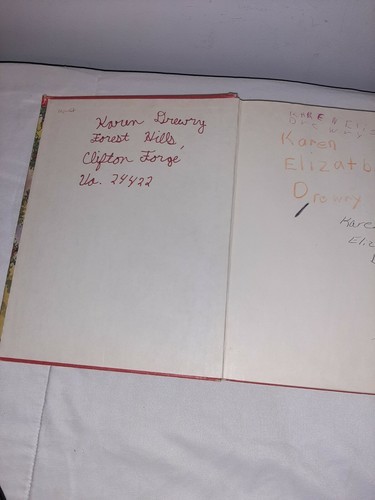 Karen Drewry
Forest Hills,
Clifton Forge
Va. 24422
KAREN Eliz
Drewry
Karen
Elizatb
Drewry
Kare
Eliz